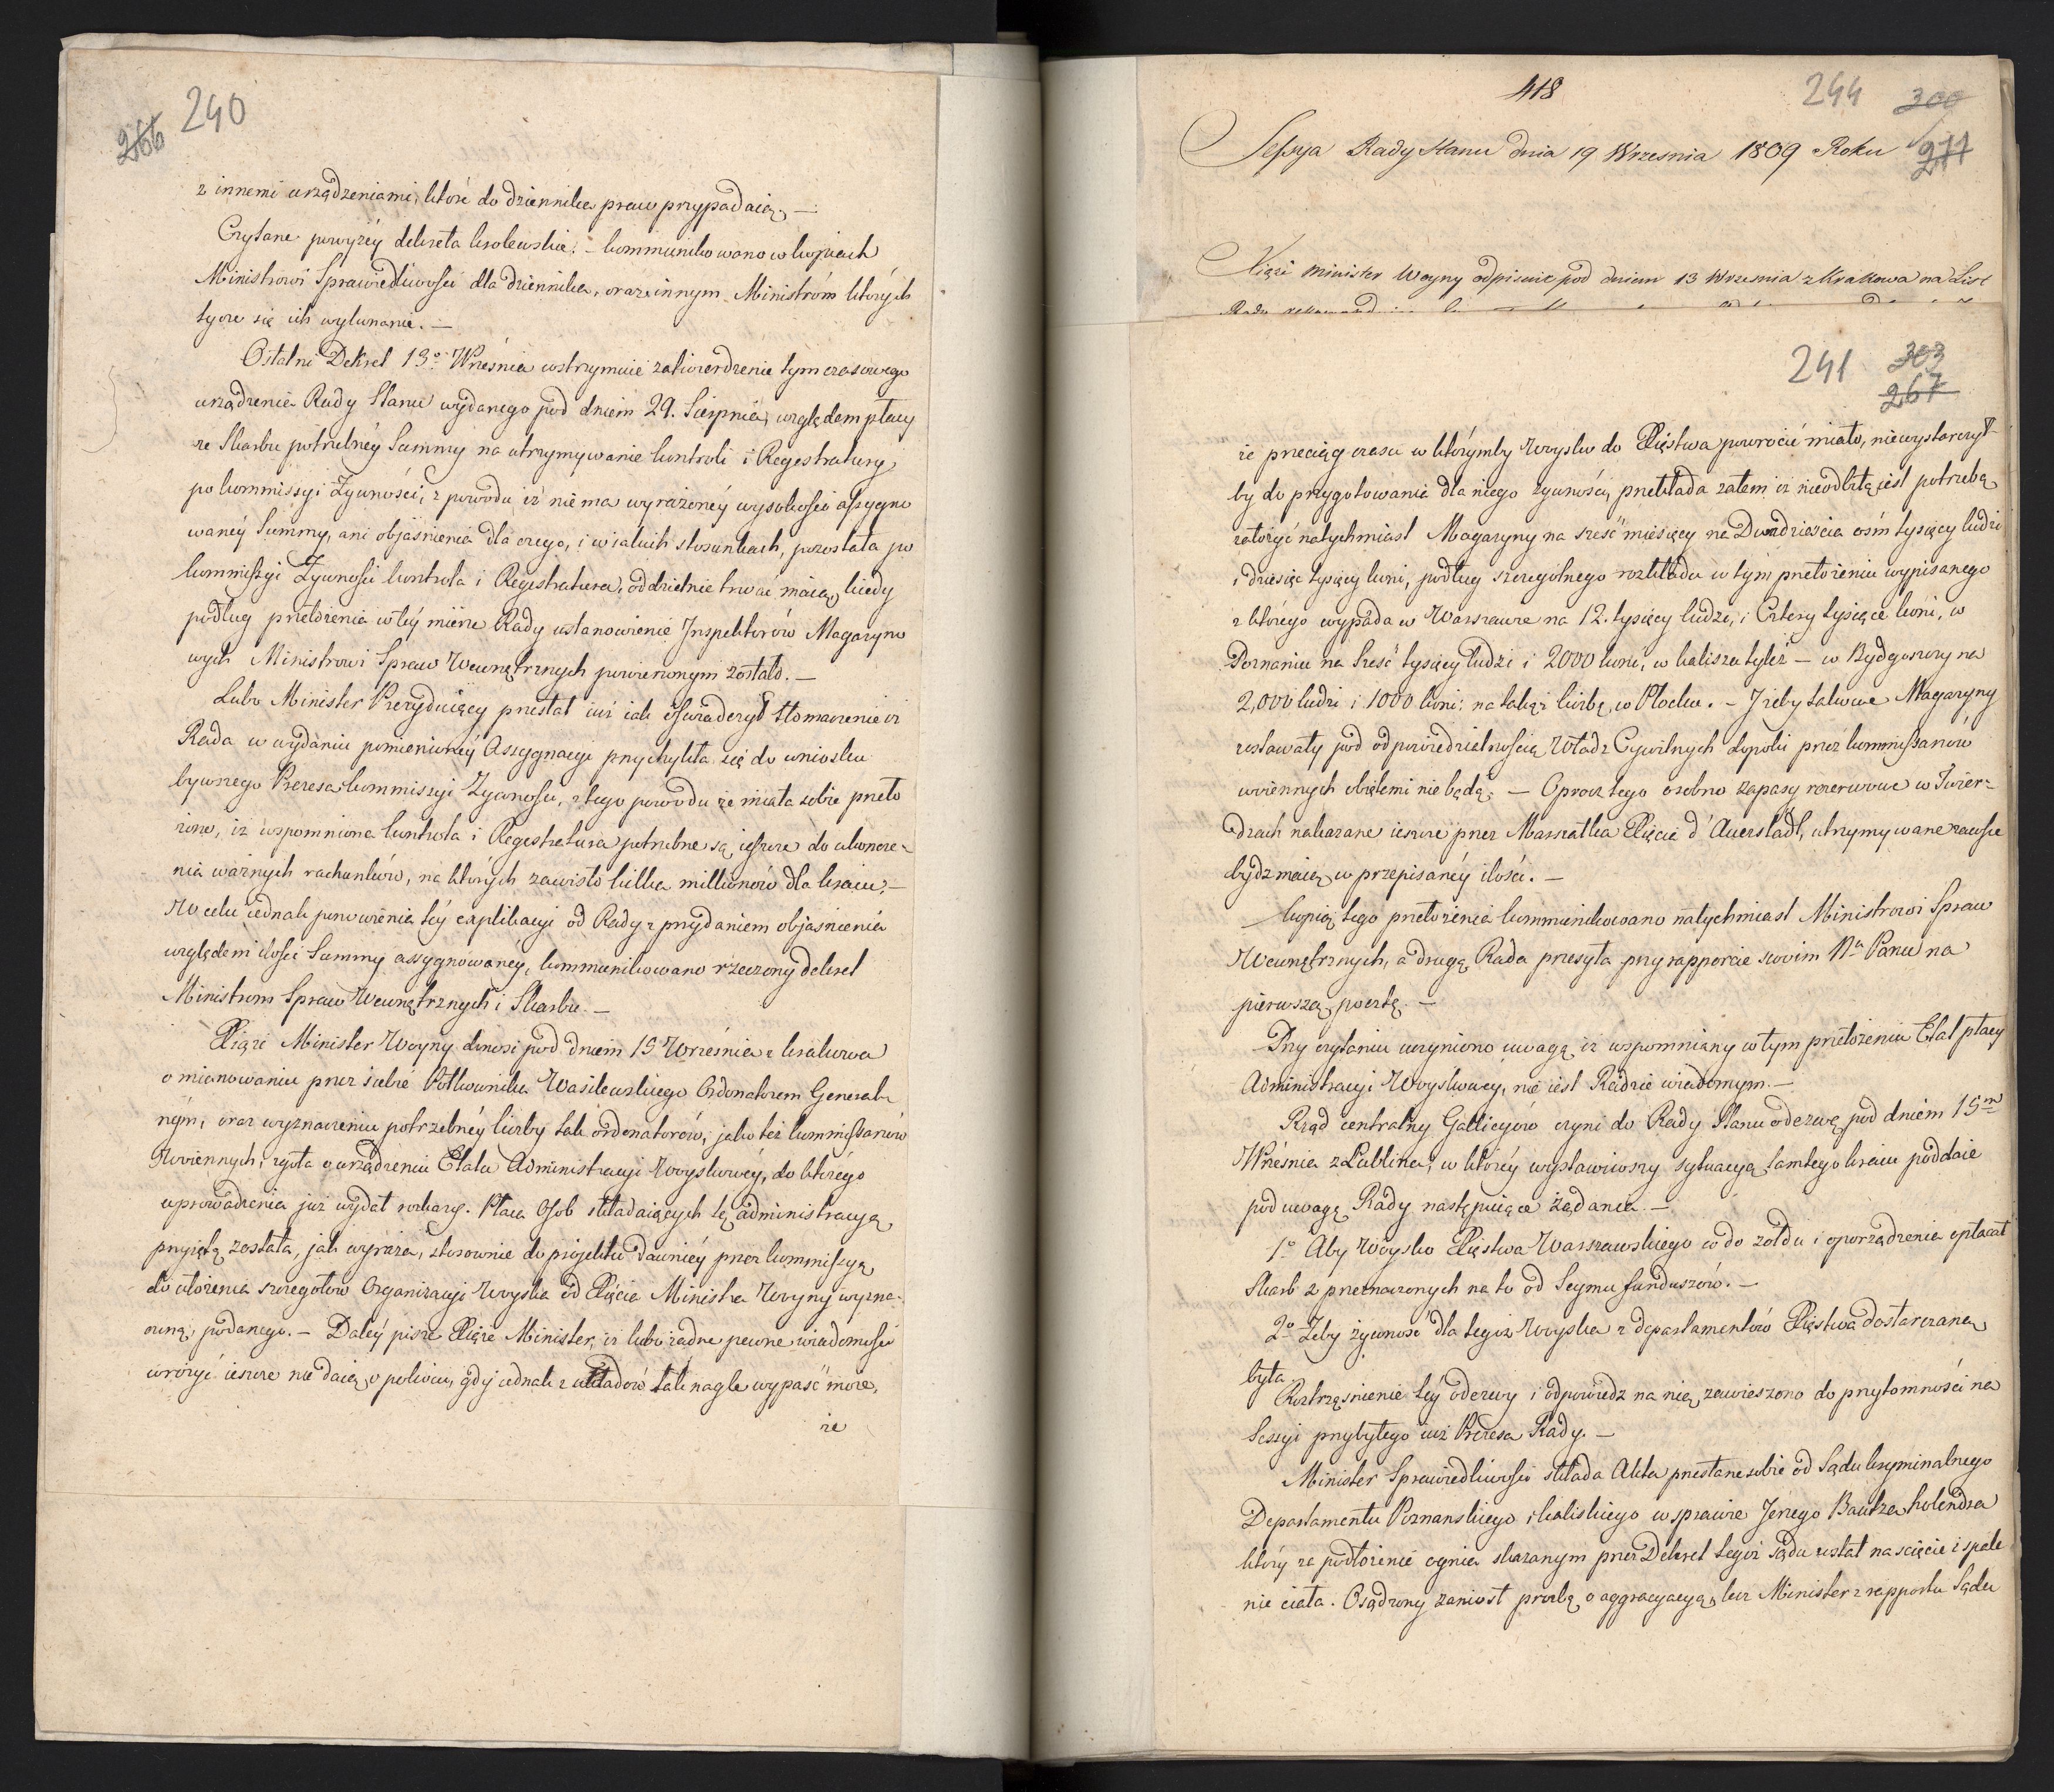 240
266
z innemi urządzeniami, które do dziennika praw przypadaią, —
Czytane powyżéy dekreta królewskie: – kommunikowano w kopiach
Ministrowi Sprawiedliwości dla dziennika, oraz innym Ministróm których
tycze się ich wykonanie. —
Ostatni Dekret 13º Wrzesnia wstrzymuie zatwierdzenie tymczasowego
urządzenia Rady Stanu wydanego pod dniem 29. Sierpnia, względem płacy
ze Skarbu potrzebnéy Summy na utrzymywanie kontroli i Regestratury
po kommissyi Żywności, z powodu iż nié ma wyrażonéy wysokości assygno
wanéy Summy, ani objaśnienia dla czego, i w iakich stosunkach, pozostała po
kommissyi Żywności kontrola i Regestratura, oddzielnie trwać maią, kiedy
podług przełożenia w téy mierze Rady ustanowienie Inspektorów Magazyno
wych Ministrowi Spraw Wewnętrznych powierzonym zostało. —
Lubo Minister Prezyduiący przesłał iuż iak oświadczył tłomaczenie iż
Rada w wydaniu pomienionéy Assygnacyi przychyliła się do wniosku
bywszego Prezesa kommissyi Żywności, z tego powodu że miała sobie przeło
żone, iż wspomniona kontrola i Regestratura potrzebne są ieszcze do ukończe-
nia ważnych rachunków, na których zawisło kilka millionów dla kraiu, —
W celu iednak ponowienia téy explikacyi od Rady z przydaniem objaśnienia
względem ilości Summy assygnowanéy, kommunikowano rzeczony dekret
Ministrom Spraw Wewnętrznych i Skarbu. —
Xiąże Minister Woyny donosi pod dniem 15 Wrześnią z krakowa
o mianowaniu przez siebie Półkownika Wasilewskiego Ordonatorem General
nym, oraz wyznaczeniu potrzebnéy liczby tak ordonatorów, jako też kommissarzów
Woiennych, zgoła o urządzeniu Etatu Administracyi Woyskowéy, do którégo
uprowadzenia już wydał rozkazy. Płaca Osob składaiących tę administracyą
przyiętą została, jak wyraża, stosownie do projektu dawniéy przez kommissyą
do ułożenia szczegółów Organizacyi Woyska od Xięcia Ministra Woyny wyzna-
czoną, podanego. – Daléy pisze Xiąże Minister, iż lubo żadne pewne wiadomości
wróżyć ieszcze nie daią o pokoiu, gdy iednak z układów tak nagle wypaść może,
że
418
244
300
277
Sessya Rady Stanu dnia 19 Wrzesnia 1809 Roku
Xiąże Minister Woyny odpisuie pod dniem 13 Wrzesnia z Krakowa na List
241
303
267
że przeciąg czasu w którymby Woysko do Xięstwa powrócić miało, niewystarczył-
by do przygotowania dla niego żywności, przekłada zatem iż nieodbitą iest potrzebą
założyć natychmiast Magazyny na sześć miesięcy na Dwadzieścia ośm tysięcy ludzi
i dziesięć tysięcy koni, podług szczególnego rozkładu w tym przełożeniu wypisanego
z którego wypada w Warszawie na 12. tysięcy ludzi, i Cztery tysiące koni, w
Poznaniu na sześć tysięcy ludzi i 2000 koni, w kaliszu tyleż – w Bydgoszczy na
2,000 ludzi i 1000 koni: na takąż liczbę w Płocku. – Żeby takowe Magazyny
zostawały pod odpowiedzialnością Władz Cywilnych dopóki przez kommissarzów
woiennych obiętemi nie będą; — Oprocz tego osobno zapasy rezerwowe w Twier-
dzach nakazane ieszcze przez Marszałka Xięcia d'Auerstädt, utrzymywane zawsze
bydź maią w przepisanéy ilości. —
kopią tego przełożenia kommunikowano natychmiast Ministrowi Spraw
Wewnętrznych, a drugą Rada przesyła przy rapporcie swoim Nu Panu na
pierwszą pocztę. —
Przy czytaniu uczyniono uwagę iż wspomniany w tym przełożeniu Etat płacy
Administracyi Woyskowéy, nie iest Radzie wiadomym. —
Rząd centralny Gallicyów czyni do Rady Stanu odezwę pod dniem 15m
Wrzesnia z Lublina, w któréy wystawiwszy sytuacyą tamtego kraiu poddaie
pod uwagę Rady następuiące żądania. —
1º Aby Woysko Xięstwa Warszawskiego co do żołdu i oporządzenia opłacał
Skarb z przeznaczonych na to od Seymu funduszów. —
2º Żeby żywność dla tegoż Woyska z departamentów Xięstwa dostarczana
była
Roztrząśnienie téy odezwy i odpowiedz na nią, zawieszono do przytomności na
Sessyi przybyłego iuż Prezesa Rady. —
Minister Sprawiedliwości składa Akta przesłane sobie od Sądu kryminalnego
Departamentu Poznanskiego i kaliskiego w sprawie Jerzego Bautza holendra
który za podłożenie ognia skazanym przez Dekret tegoż sądu został na ścięcie i spale
nie ciała. Osądzony zaniosł prozbę o aggracyacyą, lecz Minister z rapportu Sądu